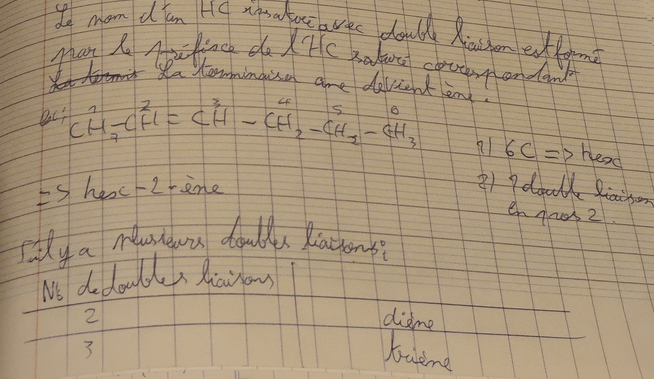 Le nom d'un HC insaturé avec double liaison est formé
par le préfixe de l'HC saturé correspondant
La terminaison ane devient ène.
ex: CH3-CH = CH - CH2 - CH2 - CH3
1 2 3 4 5 6
1) 6C => hex
=> hex-2-ène
2) 1 double liaison
en pos 2.
S'il y a plusieurs doubles liaisons:
Nb de doubles liaisons
2 diène
3 triène